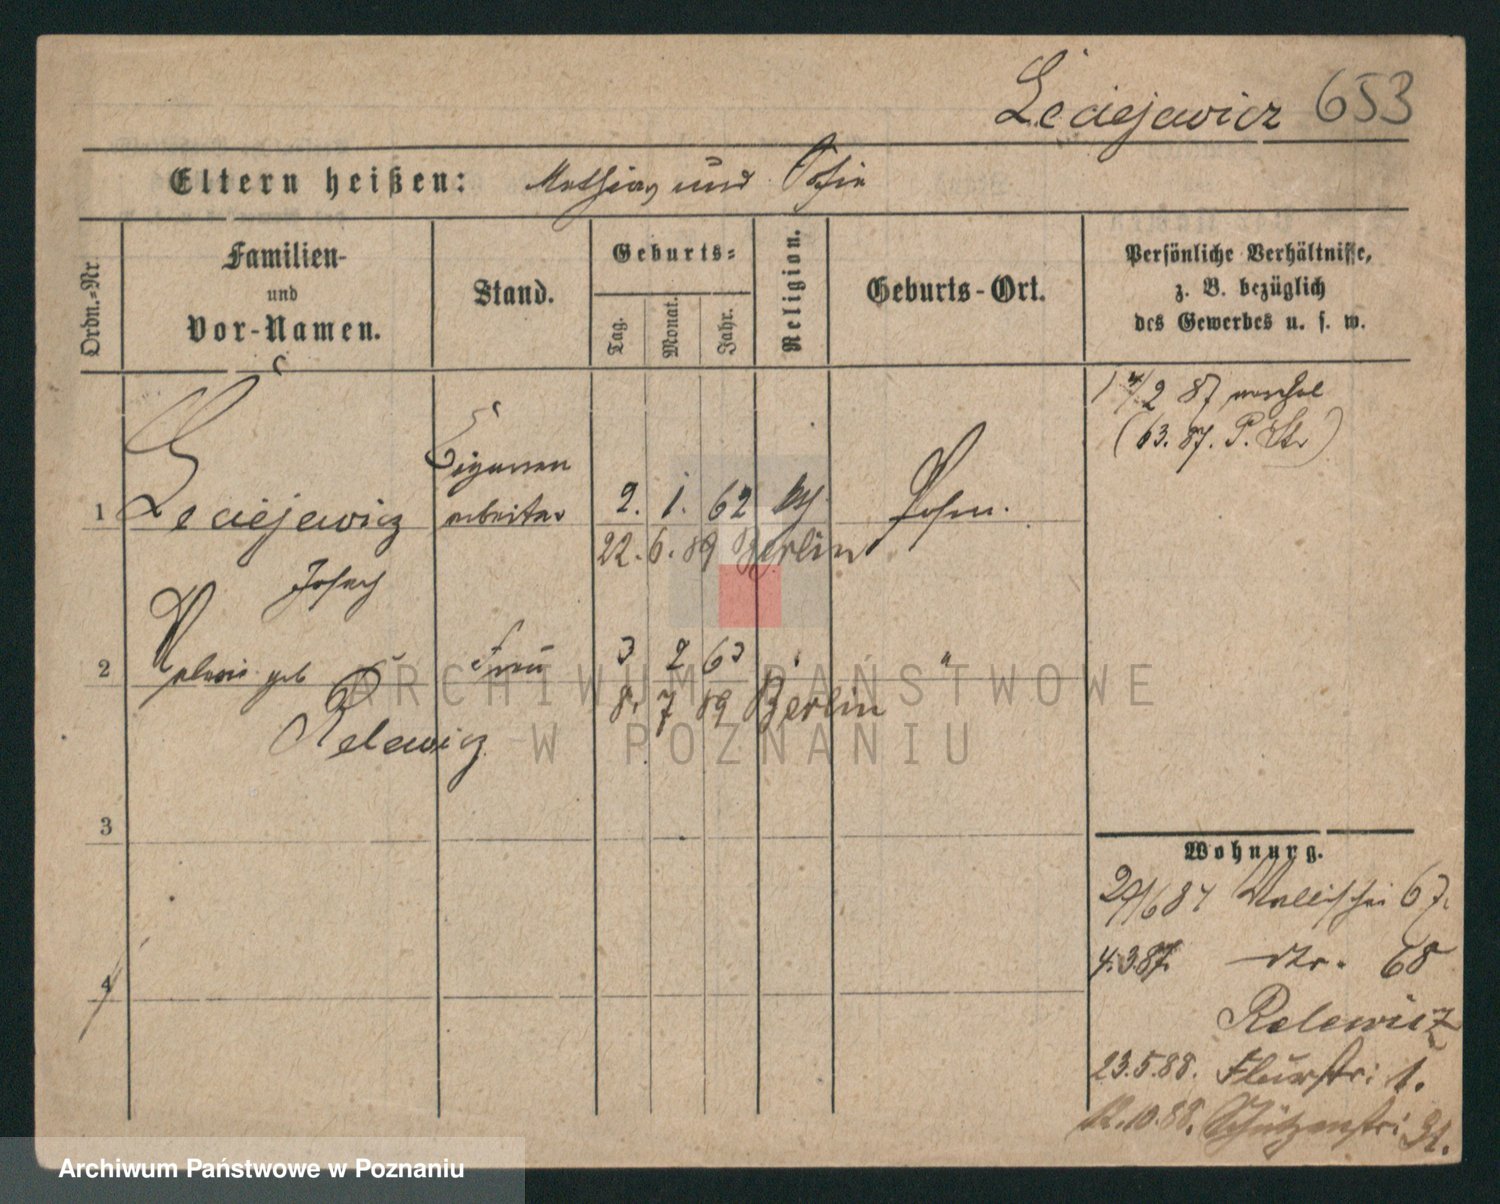 Leciejewicz 653
Eltern heißen: Mathias und Sofie
Ordn.-Nr.
Familien-
und
Vor-Namen.
Stand.
Geburts-
Tag.
Monat.
Jahr.
Religion.
Geburts-Ort.
Persönliche Verhältnisse,
z. B. bezüglich
des Gewerbes u. s. w.
87
(63. 87. P. Str)
1 Leciejewicz
Josef
Cigarren
arbeiter
2. 1. 62 kth Posen.
22. 6. 89 Berlin
2 geb
Relewicz
Frau
3 2 63 " "
8. 7 89 Berlin
3
4
Wohnung.
Wallischei 67.
4.3.87. dto. 68
Relewicz
23.5.88. Flurstr: 1.
12.10.88. Schützenstr: 31.
ARCHIWUM PAŃSTWOWE
W POZNANIU
Archiwum Państwowe w Poznaniu